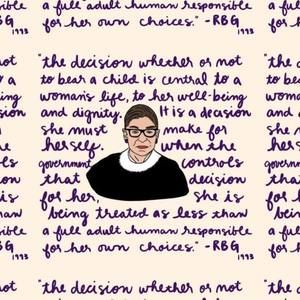 a full adult human responsible
for her own choices." -RBG
1993
"the decision whether or not
to bear a child is central to a
woman's life, to her well-being
and dignity. It is a decision
she must make for
herself. When the
government controls
that decision
for her, she is
being treated as less than
a full adult human responsible
for her own choices." -RBG
1993
"the decision whether or not
to bear a child is central to a